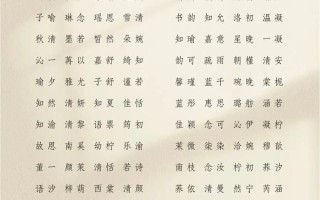 子 喻 念 瑶 思 雪 清 书 韵 知 允 洛 初 温 凝
秋 清 墨 若 皙 然 朵 婉 知 瑜 嘉 意 星 晚 一 凝
沁 一 苒 以 嘉 舒 绮 知 韵 可 疏 雨 朝 槿 清 安
瑜 夕 雅 尤 子 舒 谨 若 馨 蕴 知 暖 婉 一 棠 栀
知 然 清 妍 知 夏 佳 恬 蓝 彤 惠 思 璐 舫 涵 若
知 渝 清 黎 语 票 初 佳 颖 念 可 沁 伊 凝 柠
故 思 南 奚 幼 柠 乐 瑜 茉 微 柒 染 洽 婉 穆 歆
董 一 颜 茉 清 恬 若 诗 语 表 念 汝 柠 初 荞 汐
语 汐 梓 萌 西 棠 清 颜 荞 依 清 曼 然 宁 芮 涵